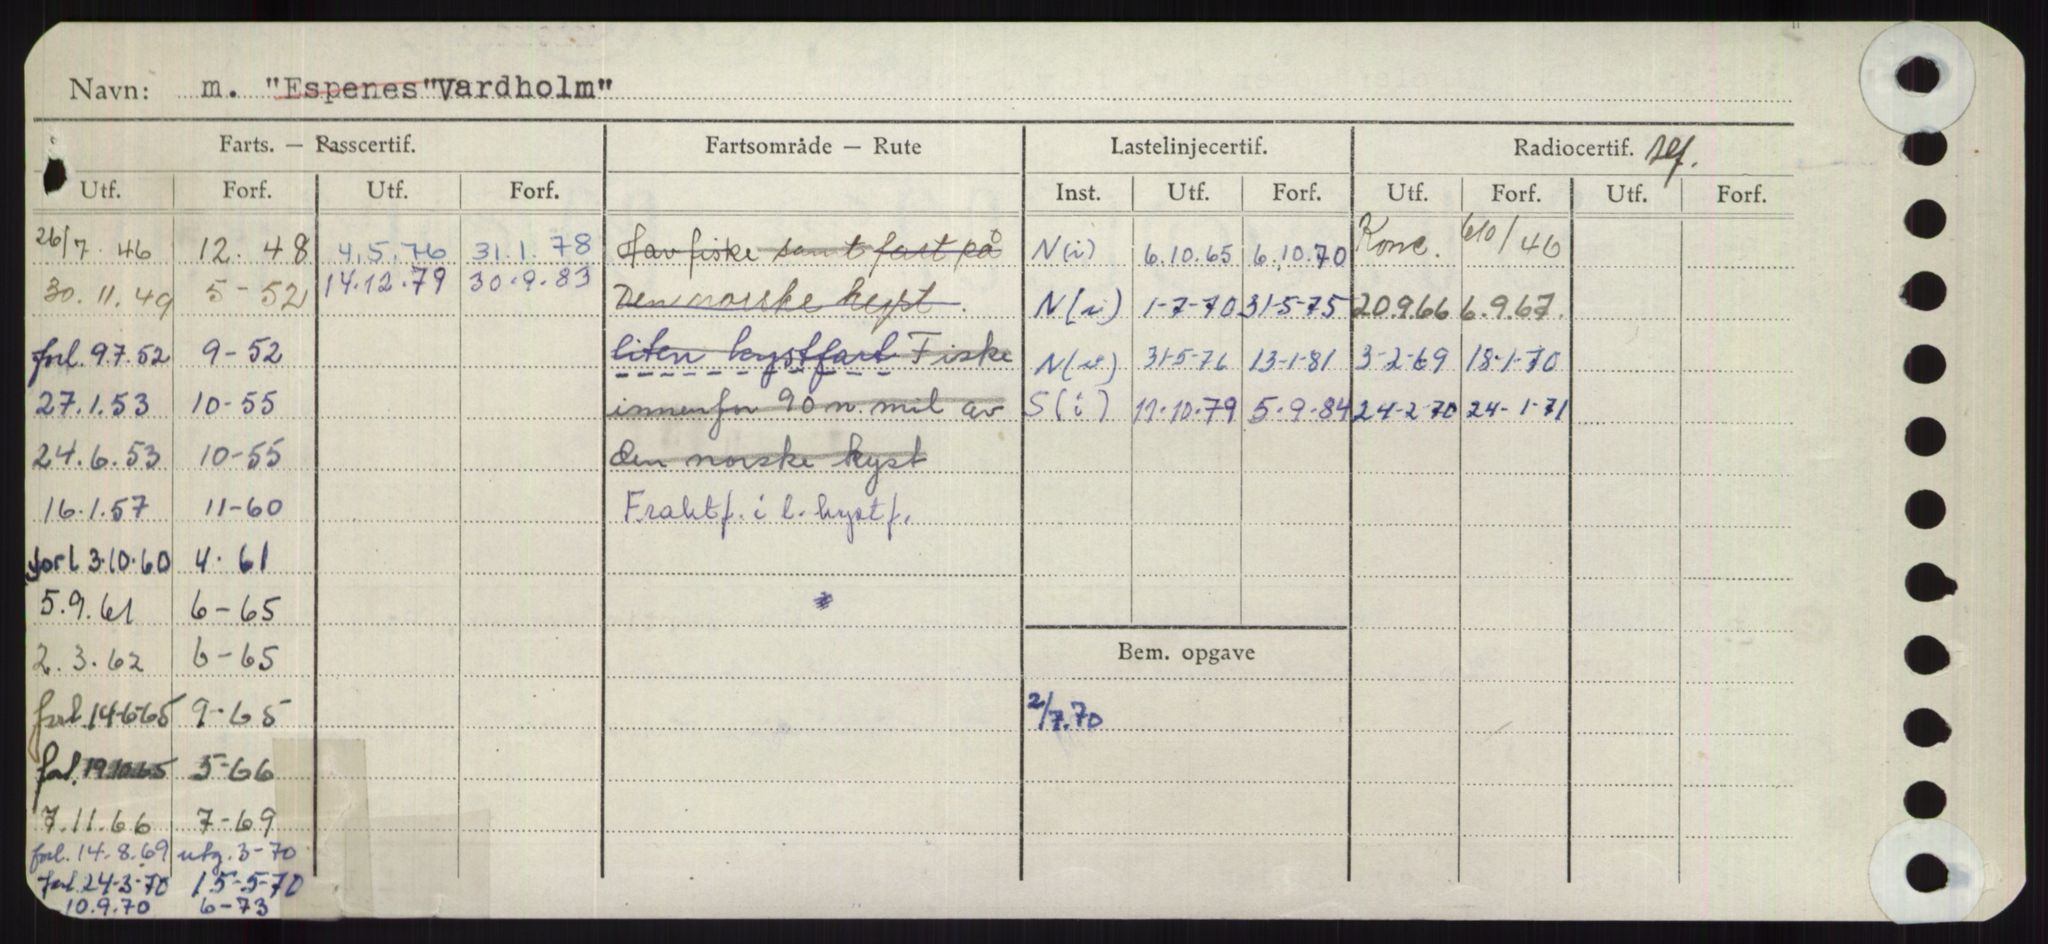 Navn: m. "Espenes" Vardholm"
Farts. — Passcertif. Fartsområde — Rute Lastelinjecertif. Radiocertif.
Utf. Forf. Utf. Forf. Inst. Utf. Forf. Utf. Forf. Utf. Forf.
26/7 46 12. 48 4.5.76 31.1.78 Havfiske samt fart på N(i) 6.10.65 6.10.70 Konc. 610/46
30.11.49 5-52 14.12.79 30.9.83 Den norske kyst. N(i) 1-7-70 31-5-75 20.9.66 6.9.67.
forl. 9.7.52 9-52 liten kystfart Fiske N(i) 31-5-76 13-1-81 3-2-69 18-1-70
27.1.53 10-55 innenfor 90 n. mil av S(i) 11.10.79 5.9.84 24-2-70 24-1-71
24.6.53 10-55 den norske kyst
16.1.57 11-60 Fraktf. i l. kystf.
forl 3.10.60 4.61
5.9.61 6-65
Bem. opgave
2.3.62 6-65
forl. 14-6-65 9-65 2/7.70
forl. 19.10.65 5-66
7.11.66 7-69
forl. 14.8.69 utg. 3-70
forl. 24-3-70 15-5-70
10.9.70 6-73